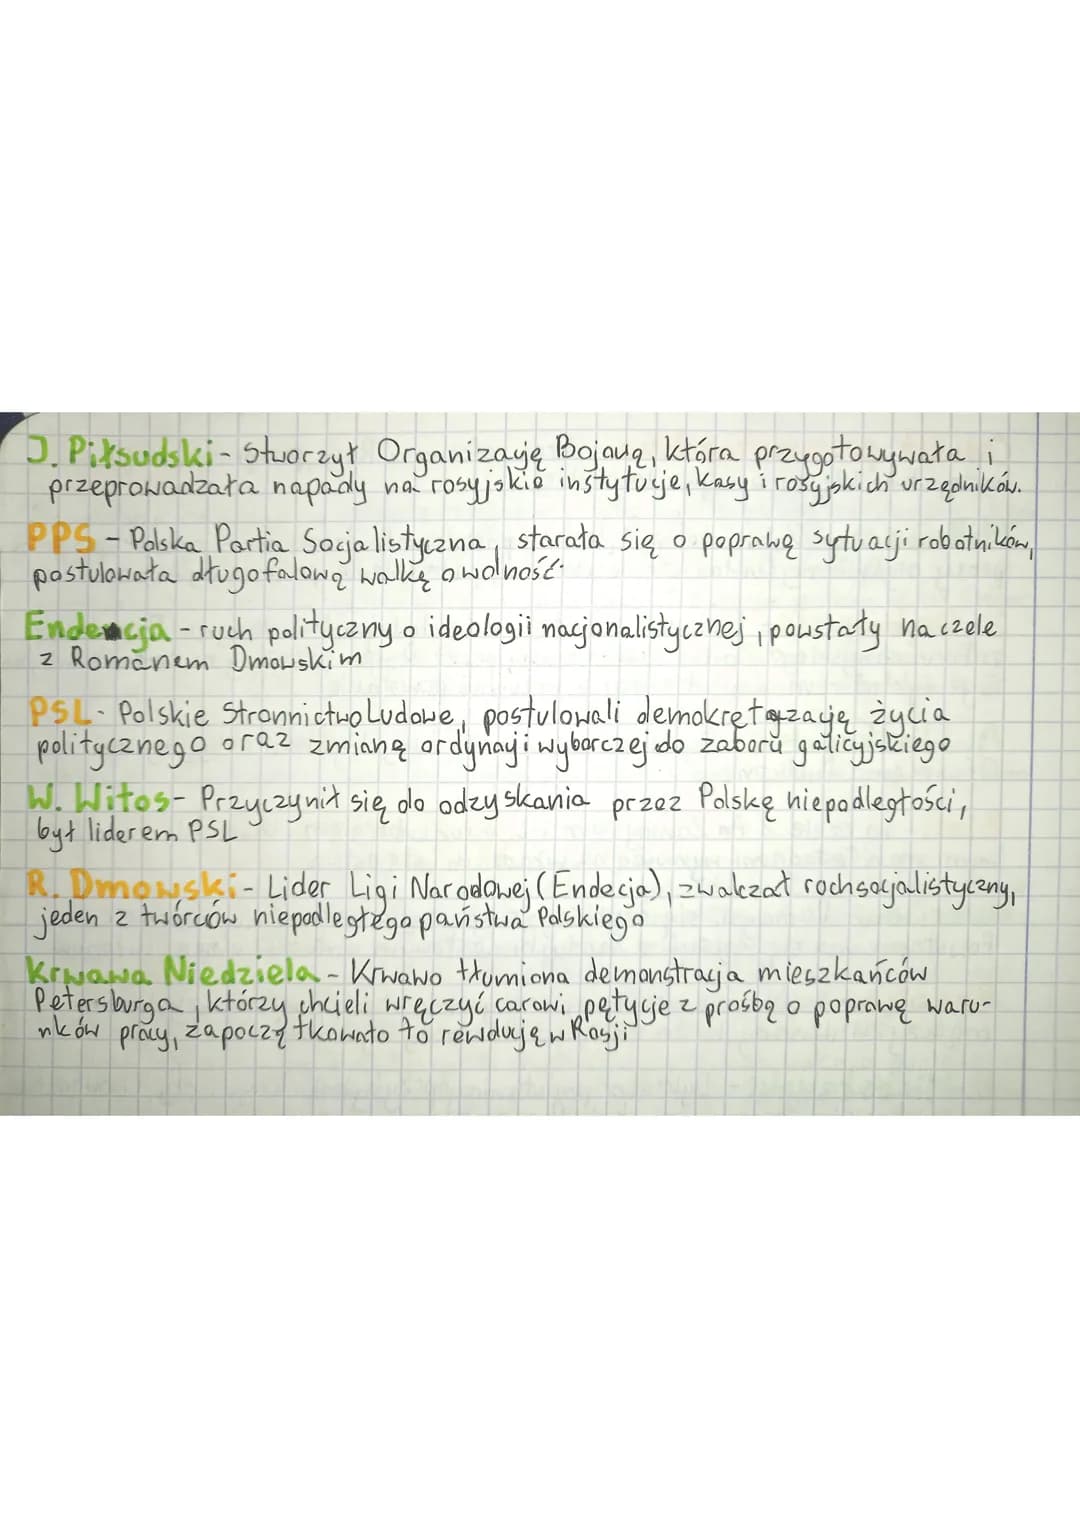 J. Piłsudski - Stworzył Organizację Bojową, która przygotowywała i
przeprowadzała napady na rosyjskie instytucje, kasy i rosyjskich urzędników.
PPS - Polska Partia Socjalistyczna, starała się o poprawę sytuacji robotników,
postulowała długofalową walkę o wolność.
Endencja - ruch polityczny o ideologii nacjonalistycznej, powstały na czele
z Romanem Dmowskim
PSL - Polskie Stronnictwo Ludowe, postulowali demokrętyzację życia
politycznego oraz zmianę ordynacji wyborczej do zaboru galicyjskiego
W. Witos - Przyczynił się do odzyskania przez Polskę niepodległości,
był liderem PSL
R. Dmowski - Lider Ligi Narodowej (Endecja), zwalczał rochsocjalistyczny,
jeden z twórców niepodległego państwa Polskiego
Krwawa Niedziela - Krwawo tłumiona demonstracja mieszkańców
Petersburga, którzy chcieli wręczyć carowi petycje z prośbą o poprawę waru-
nków pracy, zapoczątkowało to rewolucję w Rosji